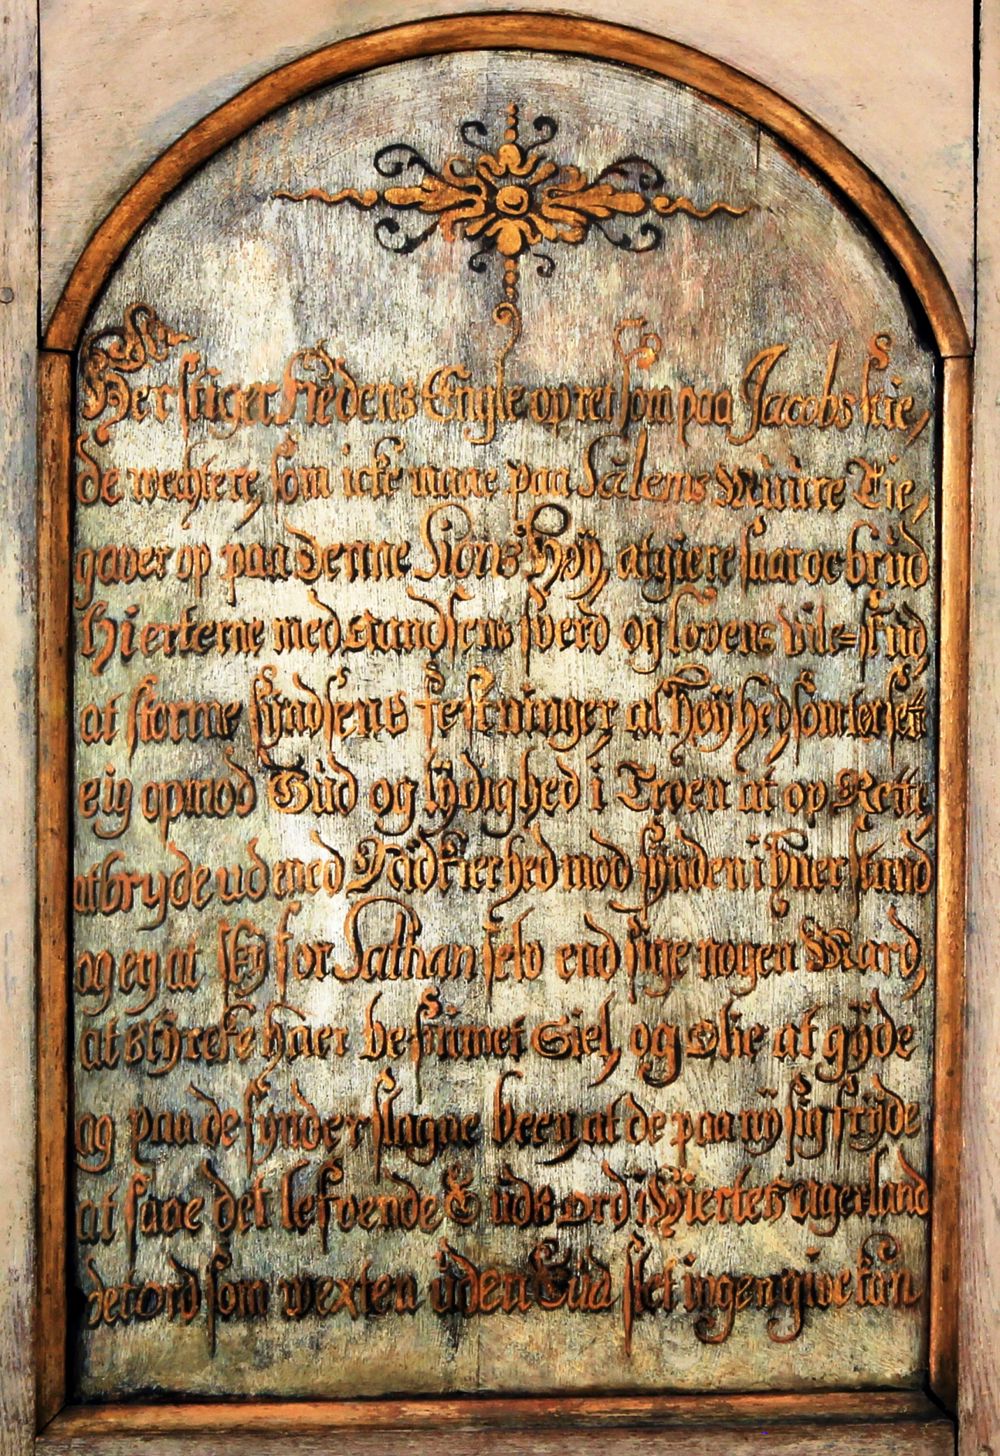 Her stiger Fredens Engle op ret som paa Jacobs stie,
de wechtere, som icke maae paa Salems Muure tie,
gaver op paa denne Kons Høy atgiere saar oc brud
i hierterne med Aandsens sverd og Lovens vile-skud
at storme Syndsens Festninger al høyhed som tør sett
eig opmod Gud og lydighed i Troen at op Rette
atbryde ud en ned Nidkierhed mod synden i huer kand
og ey at sky for Sathan selv end sige nogen Mand
at styrcke huer besuimet Siel og Olie at gyde
og paa de synder slagne been at de paa ny sig fryde
at saae det lefvende Guds ord i Hiertes ager land
det ord som wexten uden Gud slet ingen give kan